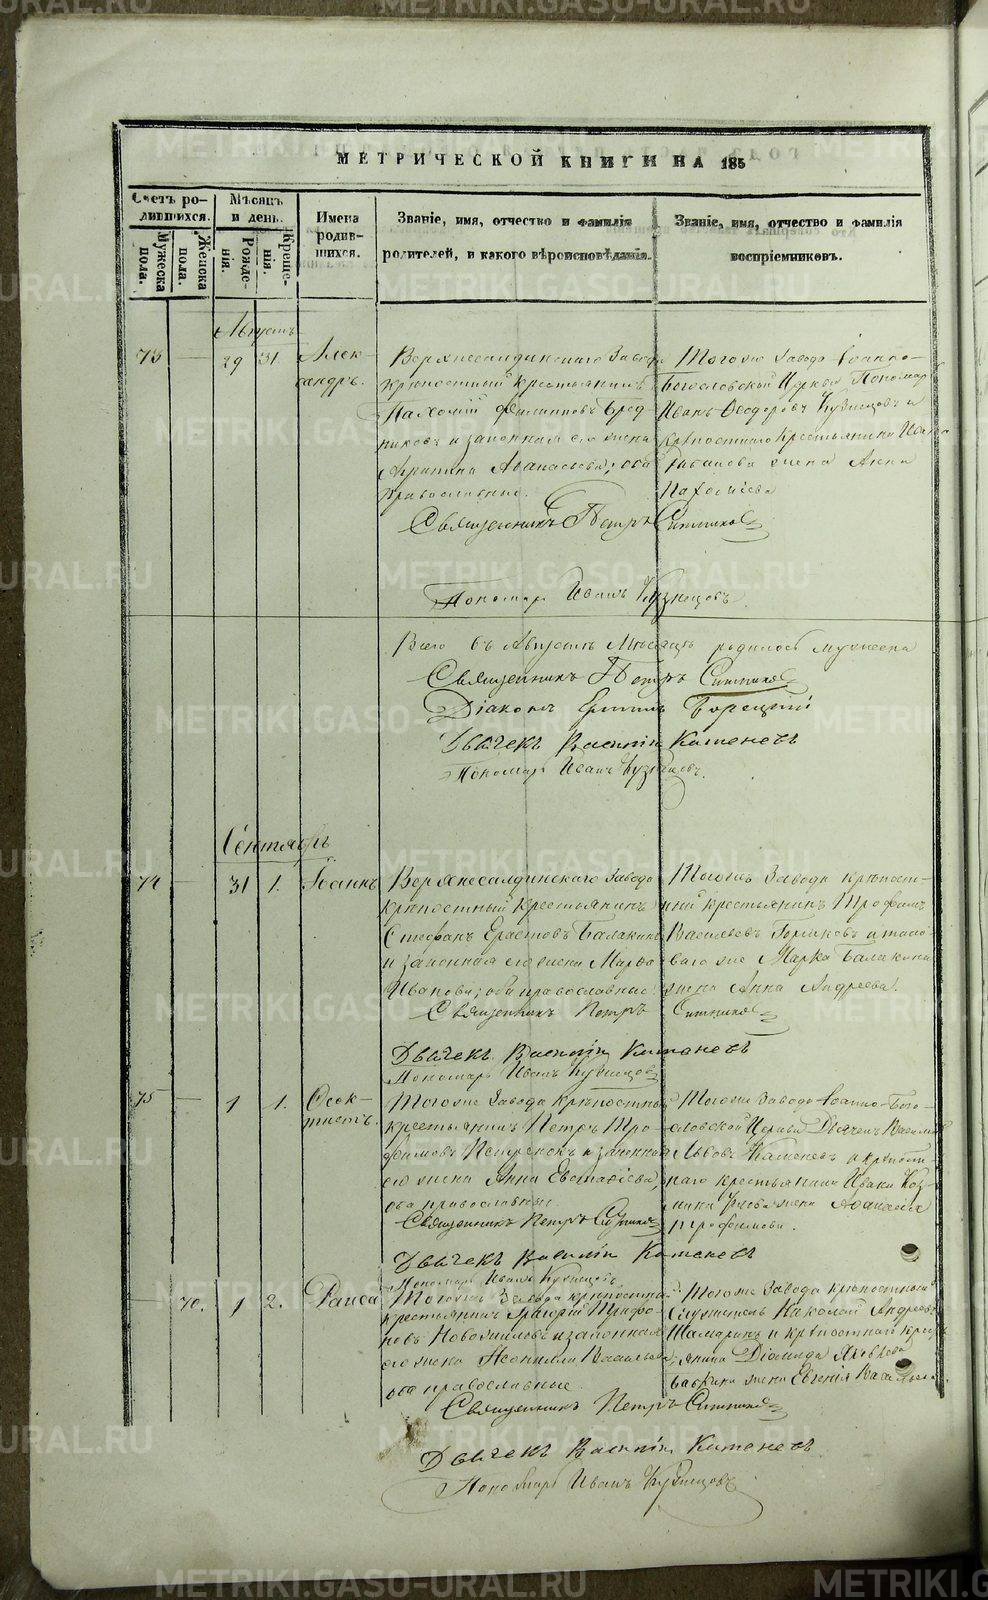 METRIKI.GASO-URAL.RU
МЕТРИЧЕСКОЙ КНИГИ НА 185
Счетъ родившихся.
Мужеска пола.
Женска пола.
Мѣсяцъ и день.
Рожденія.
Крещенія.
Имена родившихся.
Званіе, имя, отчество и фамилія
родителей, и какого вѣроисповѣданія.
Званіе, имя, отчество и фамилія
воспріемниковъ.
Августъ
73 — 29 31. Александръ.
Верхнесалдинскаго Завода
крѣпостный крестьянинъ
Пахомій Филиповъ Бродниковъ и законная его жена
Аѳанасьева; оба
православные.
Тогоже завода Іоанно-
Богословской Церкви Пономарь
Иванъ Ѳеодоровъ Кузнецовъ и
крѣпостнаго крестьянина
жена Анна
Священникъ Петръ Ситниковъ
Пономарь Иванъ Кузнецовъ
Всего въ Августѣ Мѣсяцѣ родилось мужеска
Священникъ Петръ Ситниковъ
Діаконъ
Дьячекъ Василій Каменевъ
Пономарь Иванъ Кузнецовъ.
Сентябрь
74 — 31 1. Іоаннъ
Верхнесалдинскаго Завода
крѣпостный крестьянинъ
Стефанъ Ерастовъ Балакинъ
и законная его жена Марѳа
Иванова; оба православные.
Тогоже Завода крѣпостный крестьянинъ Трофимъ
Васильевъ и таковаго же Марка Балакина
жена Анна Андреева.
Священникъ Петръ Ситниковъ
Дьячекъ Василій Каменевъ
Пономарь Иванъ Кузнецовъ
75 — 1 1. Ѳеоктистъ.
Тогоже Завода крѣпостный
крестьянинъ Петръ Трофимовъ и законная
его жена Анна Евстафіева,
оба православные
Тогоже Завода Іоанно-Богословской Церкви Дьячекъ Василій
Львовъ Каменевъ и крѣпостнаго крестьянина Ивана
жена
Трофимова.
Священникъ Петръ Ситниковъ
Дьячекъ Василій Каменевъ
Пономарь Иванъ Кузнецовъ
— 70. 1 2. Раиса
Тогоже Завода крѣпостный
крестьянинъ Григорій Трифоновъ и законная
его жена Неонилла Васильева,
оба православные.
Тогоже Завода крѣпостный
Служитель Николай Андреевъ
Шамаринъ и крѣпостнаго крестьянина Діомида Яковлева
жена Евгенія Васильева.
Священникъ Петръ Ситниковъ
Дьячекъ Василій Каменевъ
Пономарь Иванъ Кузнецовъ